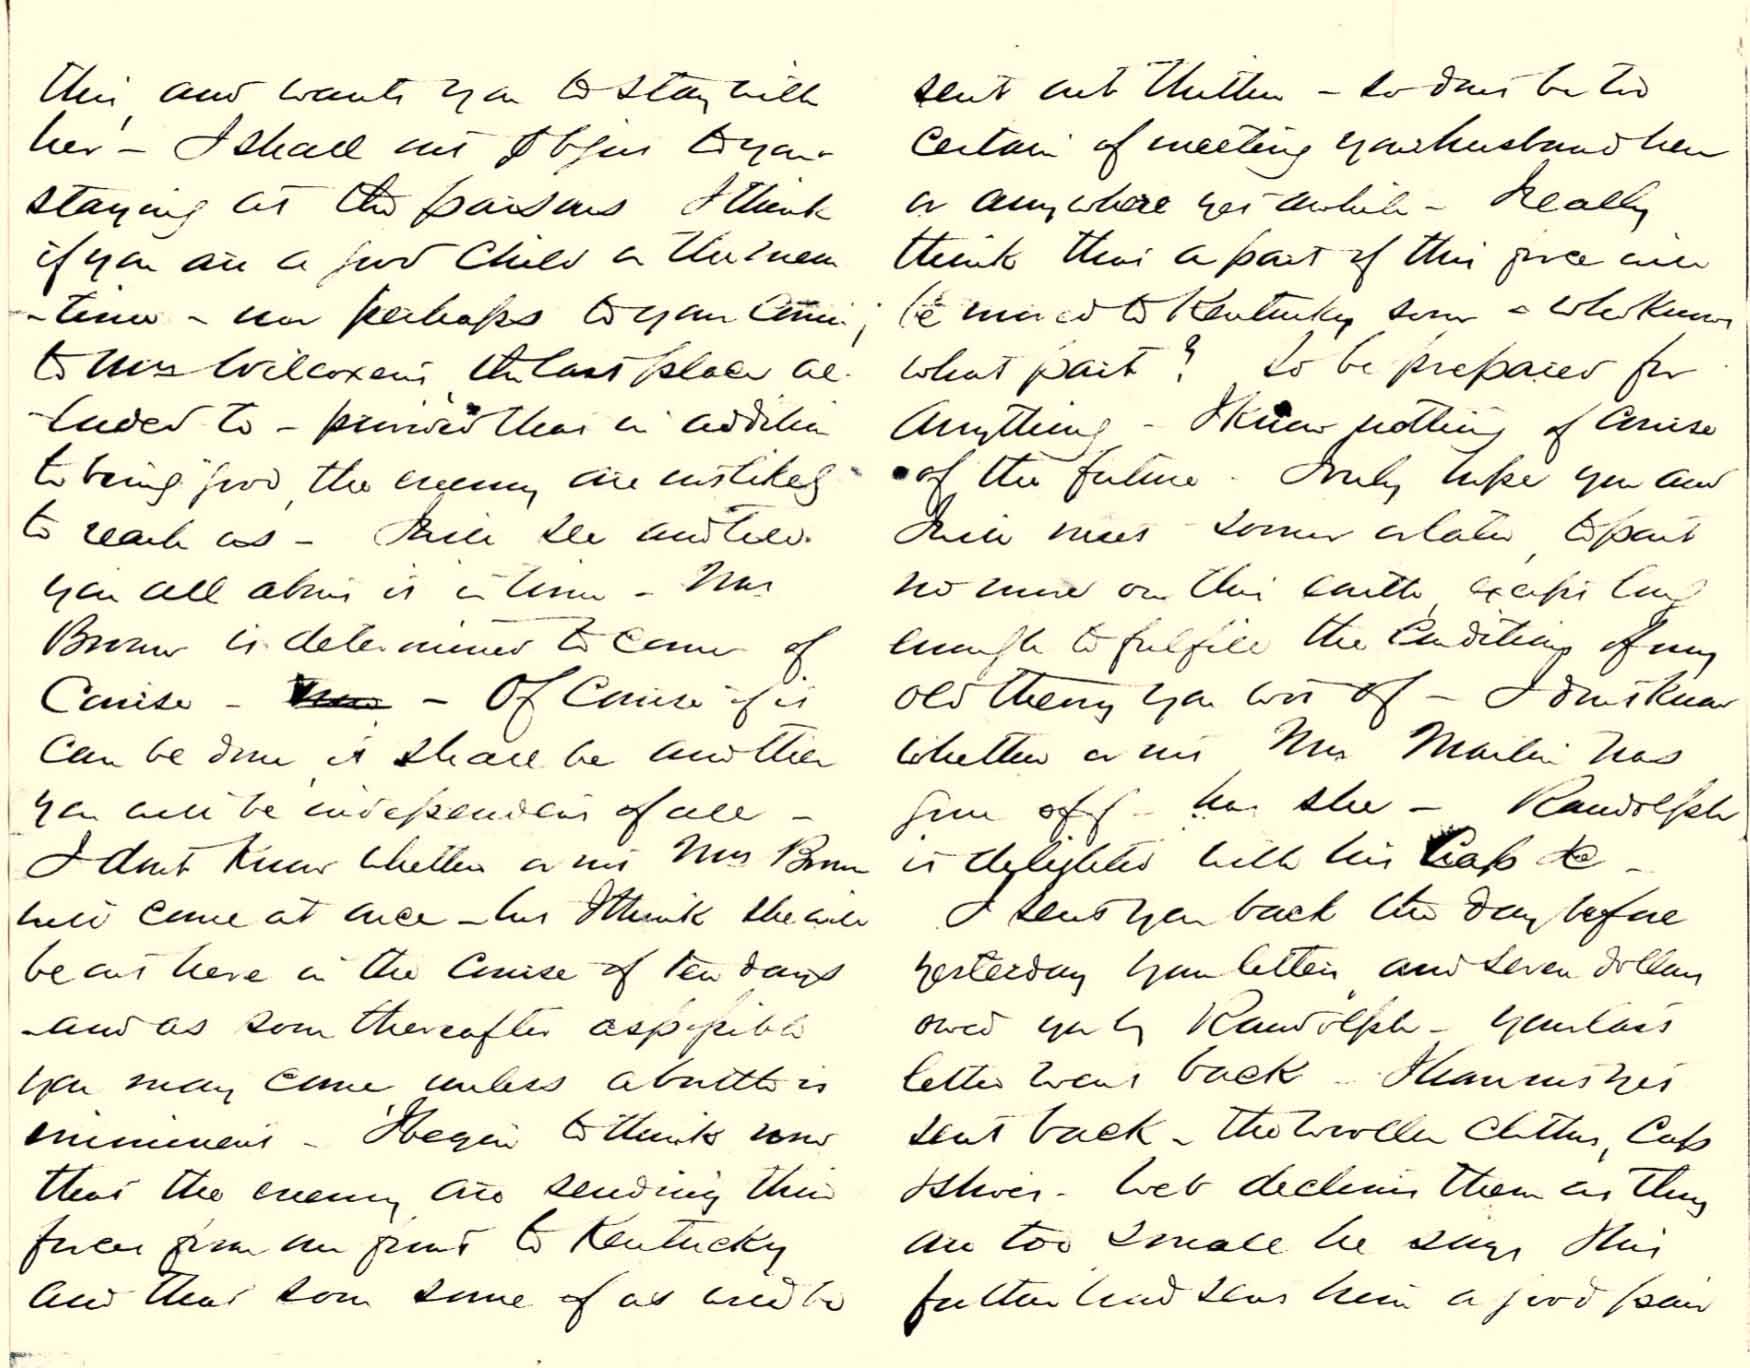 this, and wants you to stay with
her – I shall not object to your
staying at the parsons I think
if you are a good child in the mean
-time – nor perhaps to your coming
to Mrs Wilcoxens, the last place al-
-luded to – provided that in addition
to being good, the enemy are not likely
to reach us – I will see and tell
you all about it in time – Mrs
Brown is determined to come of
Course – – Of Course if it
can be done it shall be and then
you will be independent of all –
I dont know whether or not Mrs Brown
will come at once – but I think she will
be out here in the course of ten days
– and as soon thereafter as possible
you may come, unless a battle is
imminent – I begin to think now
that the enemy are sending their
forces from our front to Kentucky
and that soon some of us will be
sent out thither – so dont be too
certain of meeting your husband here
or anywhere yet awhile – I really
think that a part of this force will
be moved to Kentucky soon – who knows
what part? So be prepared for
anything – I know nothing of course
of the future. I truly hope you and
I will meet sooner or later, to part
no more on this earth, except long
enough to fulfill the conditions of my
old theory you wot of – I dont know
whether or not Mrs Martin has
gone off – has she – Randolph
is delighted with his Cap &c –
I sent you back the day before
yesterday your letters and seven dollars
owed you by Randolph – your last
letter went back – I have not yet
sent back – the woollen clothes, Cap
& shoes – Web declines them as they
are too small he says His
father had sent him a good pair